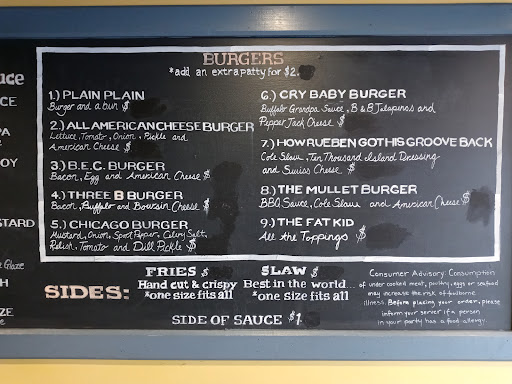 BURGERS
*add an extra patty for $2.
uce
CE
PA
OY
STARD
Glaze
H
ZE
1.) PLAIN PLAIN
Burger and a bun $
2.) ALL AMERICAN CHEESE BURGER
Lettuce, Tomato, Onion, Pickle and
American Cheese $
3.) B.E.C. BURGER
Bacon, Egg and American Cheese $
4.) THREE B BURGER
Bacon, Buffalo and Boursin Cheese $
5.) CHICAGO BURGER
Mustard, Onion, Sport Pepper, Celery Salt,
Relish, Tomato and Dill Pickle $
6.) CRY BABY BURGER
Buffalo Grandpa Sauce, B & B Jalapinos and
Pepper Jack Cheese $
7.) HOW RUEBEN GOT HIS GROOVE BACK
Cole Slaw, Ten Thousand Island Dressing
and Swiss Cheese $
8.) THE MULLET BURGER
BBQ Sauce, Cole Slaw and American Cheese $
9.) THE FAT KID
All the Toppings $
SIDES:
FRIES $
Hand cut & crispy
*one size fits all
SLAW $
Best in the world...
*one size fits all
SIDE OF SAUCE $1
Consumer Advisory: Consumption
of under cooked meat, poultry, eggs or seafood
may increase the risk of foodborne
illness. Before placing your order, please
inform your server if a person
in your party has a food allergy.